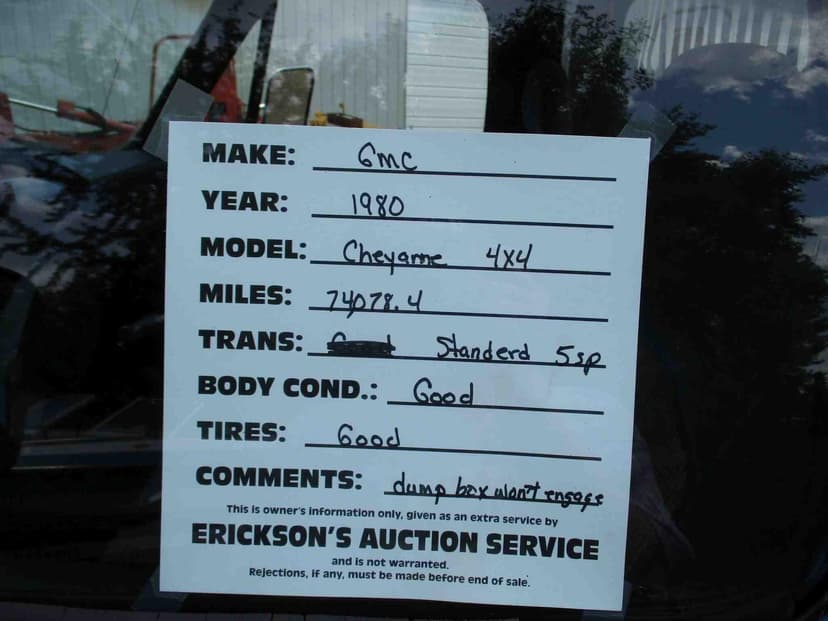 MAKE: GMC
YEAR: 1980
MODEL: Cheyanne 4x4
MILES: 74078.4
TRANS: Standerd 5sp
BODY COND.: Good
TIRES: Good
COMMENTS: dump box won't engage
This is owner's information only, given as an extra service by
ERICKSON'S AUCTION SERVICE
and is not warranted.
Rejections, if any, must be made before end of sale.